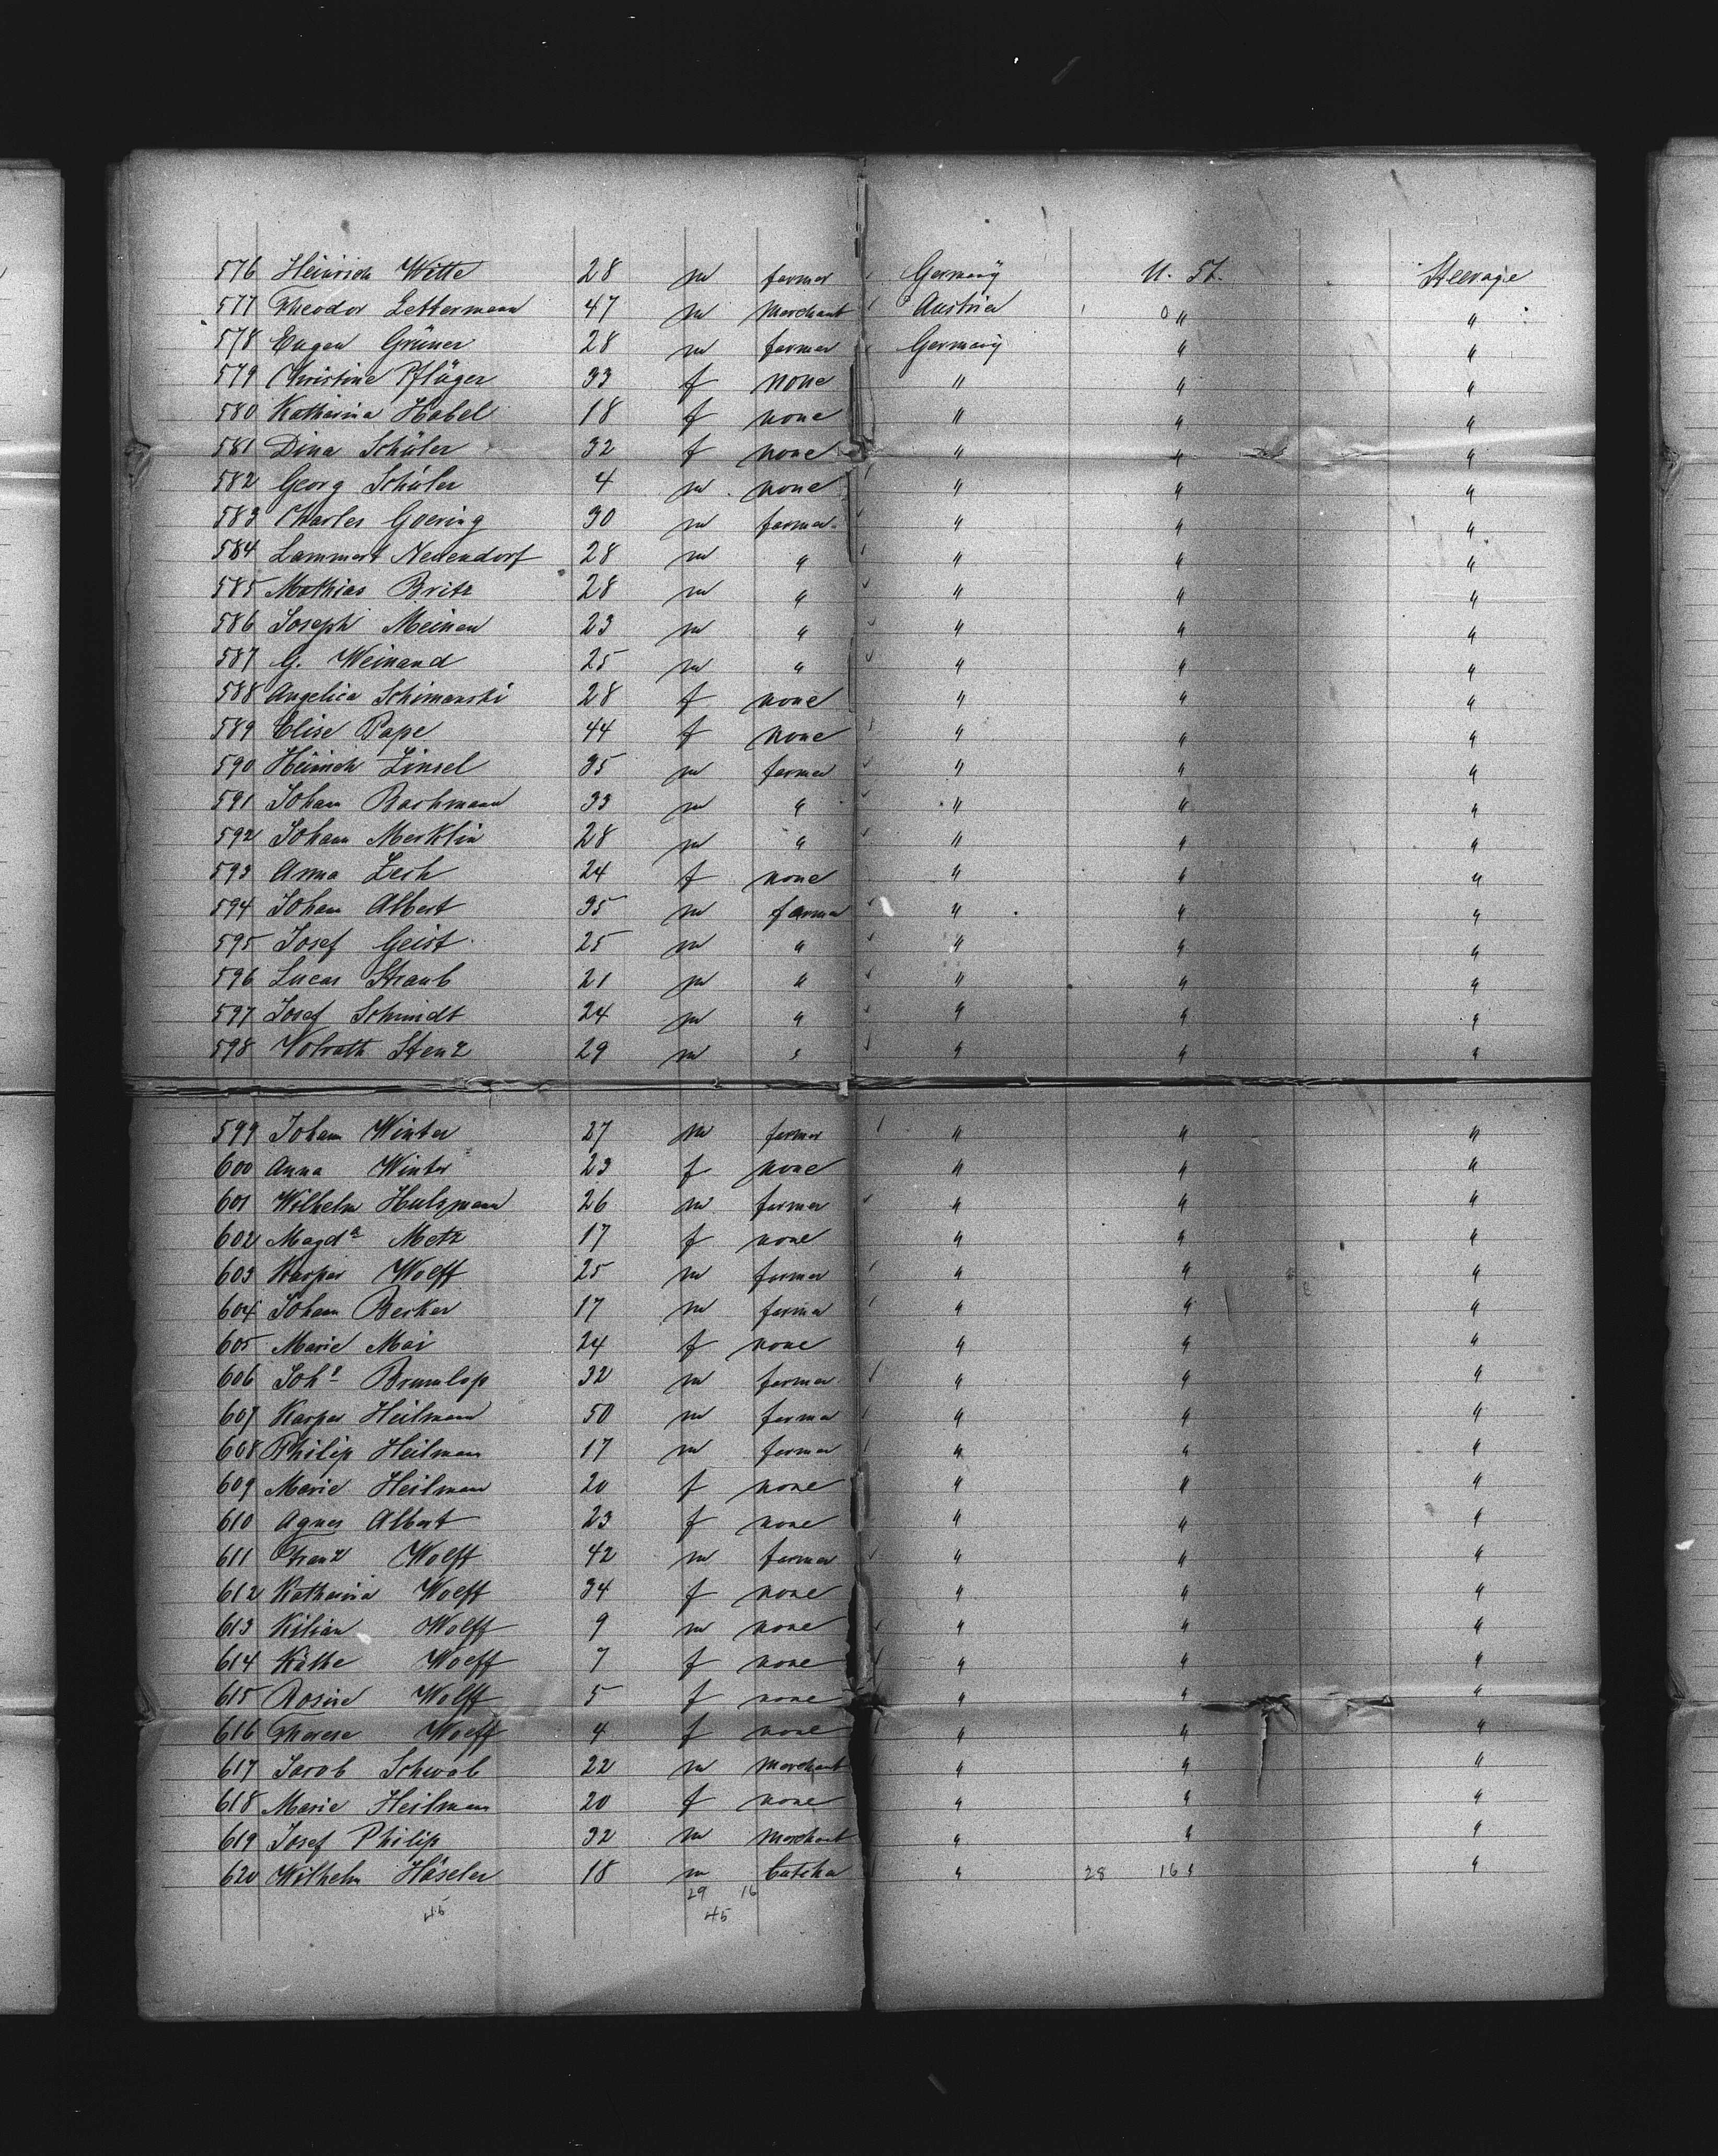 576 Heinrich Witte 28 m farmer Germany U. St. Steerage
577 Theodor Lettermann 47 m Merchant Austria 0 " "
578 Eugen Grüner 28 m farmer Germany " "
579 Christine Pflüger 33 f none " " "
580 Katharina Habel 18 f none " " "
581 Dina Schüler 32 f none " " "
582 Georg Schüler 4 m none " " "
583 Charles Goering 30 m farmer " " "
584 Lammert Neuendorf 28 m " " " "
585 Mathias Britz 28 m " " " "
586 Joseph Meinen 23 m " " " "
587 G. Weinand 25 m " " " "
588 Angelica Schimanski 28 f none " " "
589 Elise Pape 44 f none " " "
590 Heinrich Zinsel 35 m farmer " " "
591 Johann Bachmann 33 m " " " "
592 Johann Merklin 28 m " " " "
593 Anna Zech 24 f none " " "
594 Johann Albert 35 m farmer " " "
595 Josef Geist 25 m " " " "
596 Lucas Straub 21 m " " " "
597 Josef Schmidt 24 m " " " "
598 Volrath Stenz 29 m " " " "
599 Johann Winter 27 m farmer " " "
600 Anna Winter 23 f none " " "
601 Wilhelm Hulsmann 26 m farmer " " "
602 Magda Metz 17 f none " " "
603 Kaspar Wolff 25 m farmer " " "
604 Johann Becker 17 m farmer " " "
605 Marie Mai 24 f none " " "
606 Johs Brumlop 32 m farmer " " "
607 Kaspar Heilmann 50 m farmer " " "
608 Philip Heilmann 17 m farmer " " "
609 Marie Heilmann 20 f none " " "
610 Agnes Albert 23 f none " " "
611 Franz Wolff 42 m farmer " " "
612 Katharina Wolff 34 f none " " "
613 Kilian Wolff 9 m none " " "
614 Käthe Wolff 7 f none " " "
615 Rosine Wolff 5 f none " " "
616 Therese Wolff 4 f none " " "
617 Jacob Schwab 22 m Merchant " " "
618 Marie Heilmann 20 f none " " "
619 Josef Philip 32 m Merchant " " "
620 Wilhelm Häseler 18 m Butcher " 28 16 " "
29 16
45 45